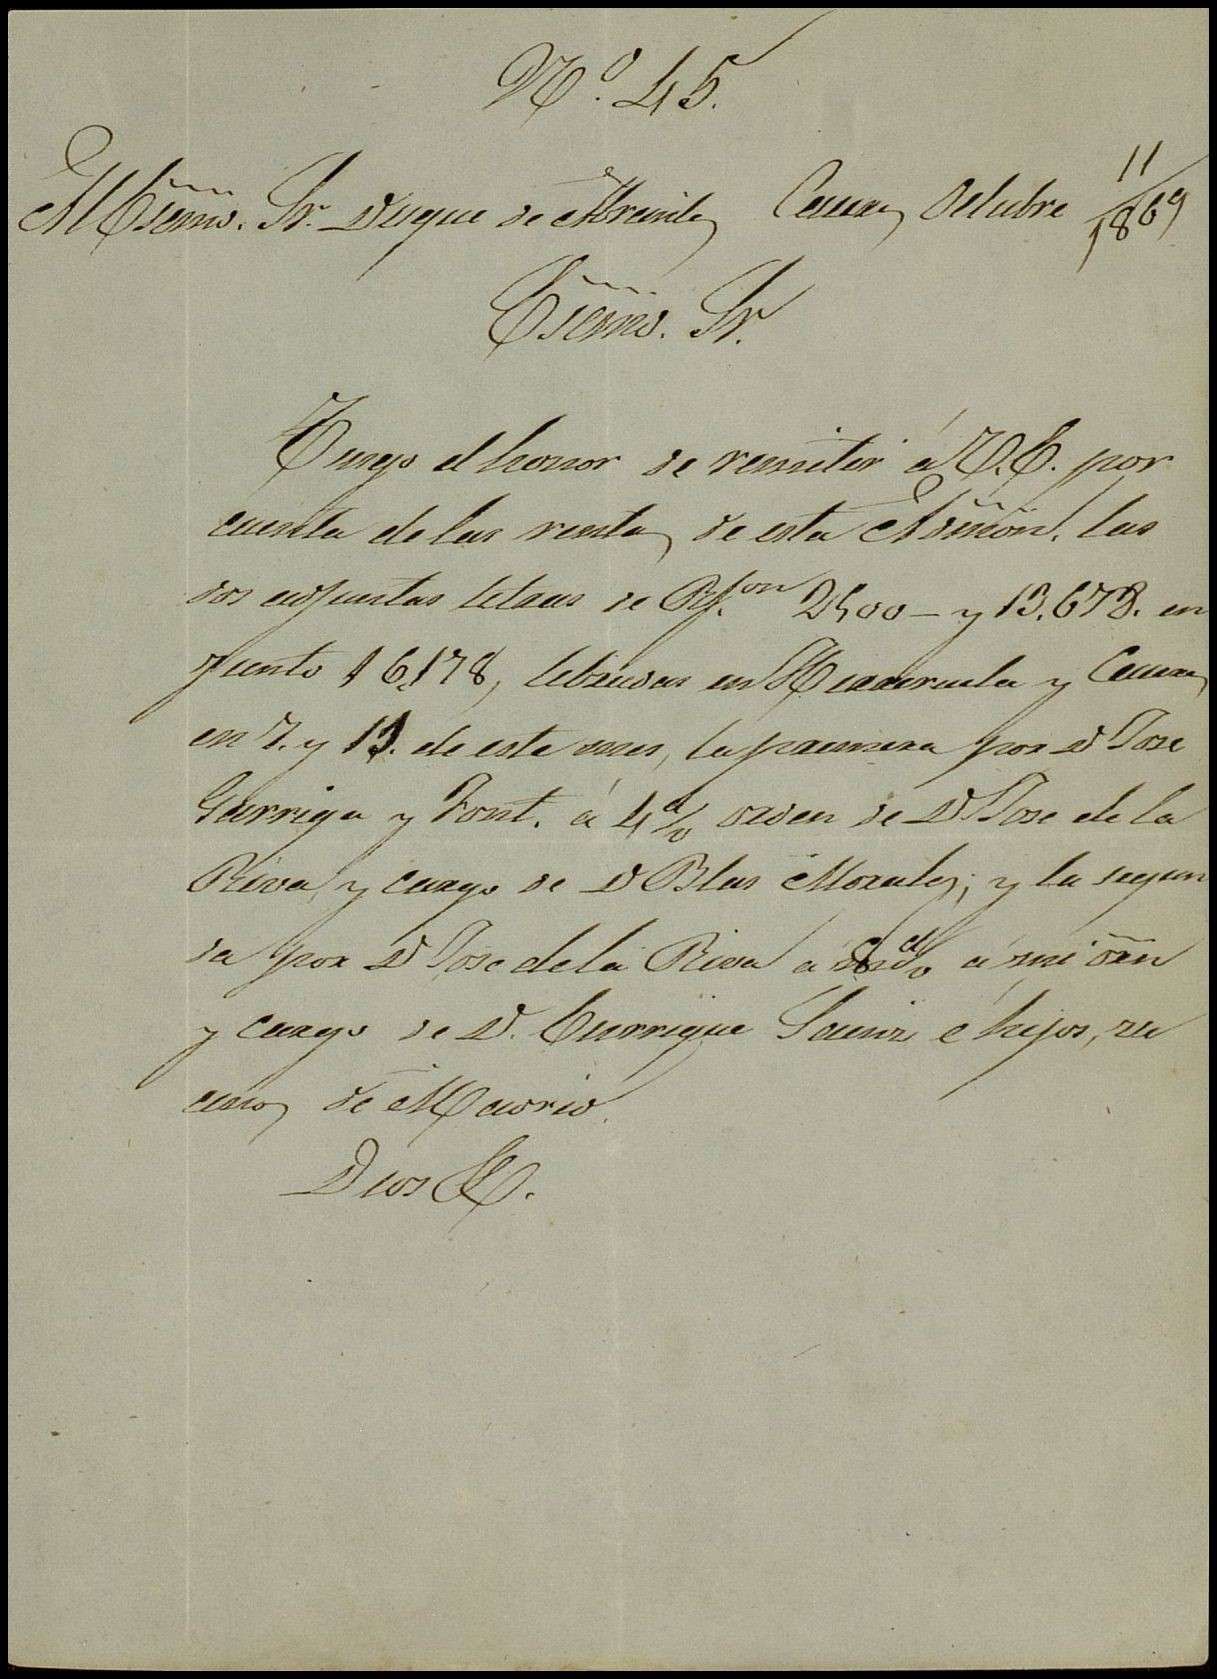 Nº. 45.
Al Escmo. Sr. Duque de Abrantes Caceres Octubre 11/1869
Escmo. Sr.
Tengo el honor de remitir á V.E. por
cuenta de las rentas de esta Admon. las
dos adjuntas letras de Rs.on 2500 - y 13.678. en
junto 16.178, libradas en y Caceres
en 7. y 11. de este mes, la primera por Dn Jose
Garriga y Font. á 4 d/v orden de Dn Jose de la
Riva, y cargo de Dn Blas Morales; y la segun
da por Dn Jose de la Riva á 8 d/v á mi orn
y cargo de Dn. Enrrique Sainz é hijos, ve
cinos de Madrid.
Dios &.